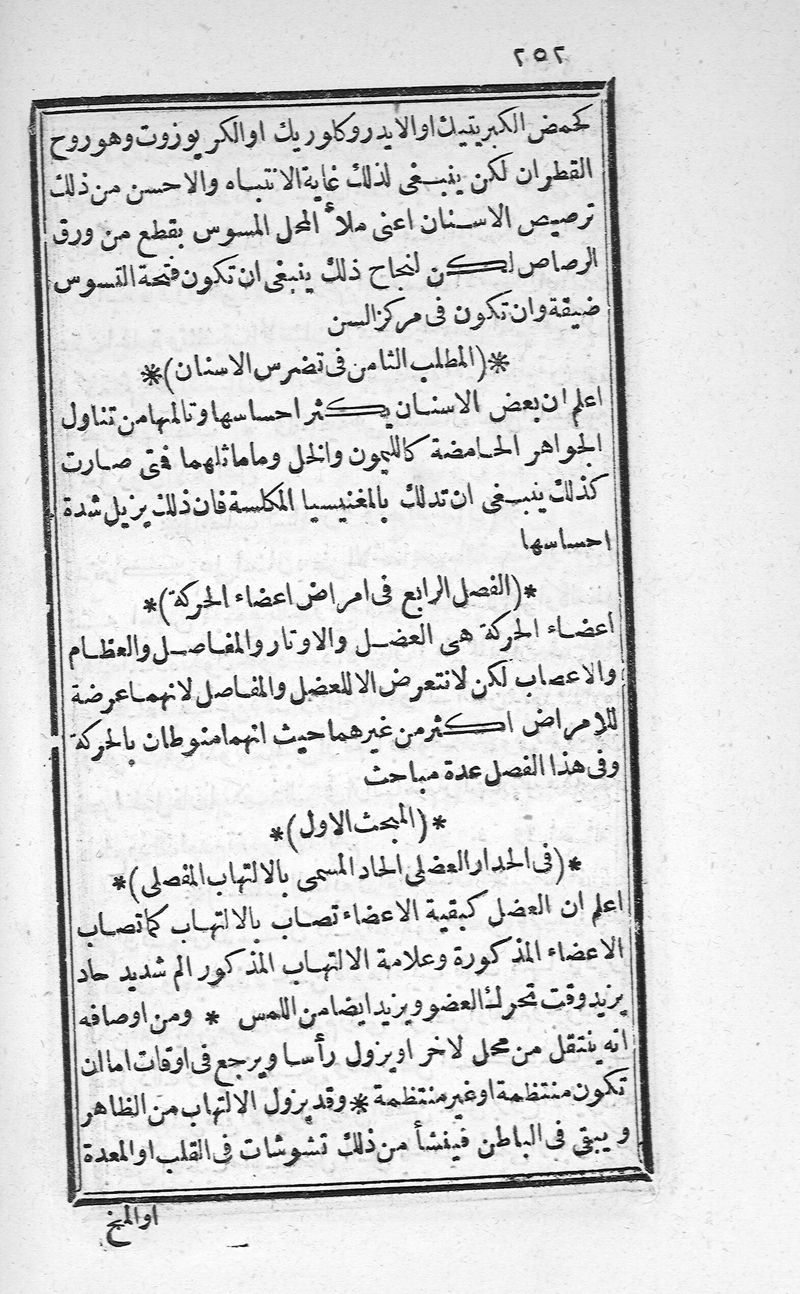 ٢٥٢
كحمض الكبريتيك او الايدروكلوريك او الكريوزوت وهو روح
القطران لكن ينبغى لذلك غاية الانتباه والاحسن من ذلك
ترصيص الاسنان اعنى ملأ المحل المسوس بقطع من ورق
الرصاص لكن لنجاح ذلك ينبغى ان تكون فتحة التسوس
ضيقة وان تكون فى مركز السن
*(المطلب الثامن فى تضرس الاسنان)*
اعلم ان بعض الاسنان يكثر احساسها وتالمها من تناول
الجواهر الحامضة كالليمون والخل وما ماثلهما فتى صارت
كذلك ينبغى ان تدلك بالمغنيسيا المكلسة فان ذلك يزيل شدة
احساسها
*(الفصل الرابع فى امراض اعضاء الحركة)*
اعضاء الحركة هى العضل والاوتار والمفاصل والعظام
والاعصاب لكن لا نتعرض الا للعضل والمفاصل لانهما عرضة
للامراض اكثر من غيرهما حيث انهما منوطان بالحركة
وفى هذا الفصل عدة مباحث
*(المبحث الاول)*
*(فى الحدار العضلى الحاد المسمى بالالتهاب المفصلى)*
اعلم ان العضل كبقية الاعضاء تصاب بالالتهاب كما تصاب
الاعضاء المذكورة وعلامة الالتهاب المذكور الم شديد حاد
يزيد وقت تحرك العضو ويزيد ايضا من اللمس * ومن اوصافه
انه ينتقل من محل لاخر او يزول رأسا ويرجع فى اوقات اما ان
تكون منتظمة او غير منتظمة * وقد يزول الالتهاب من الظاهر
ويبقى فى الباطن فينشأ من ذلك تشوشات فى القلب او المعدة
او المخ